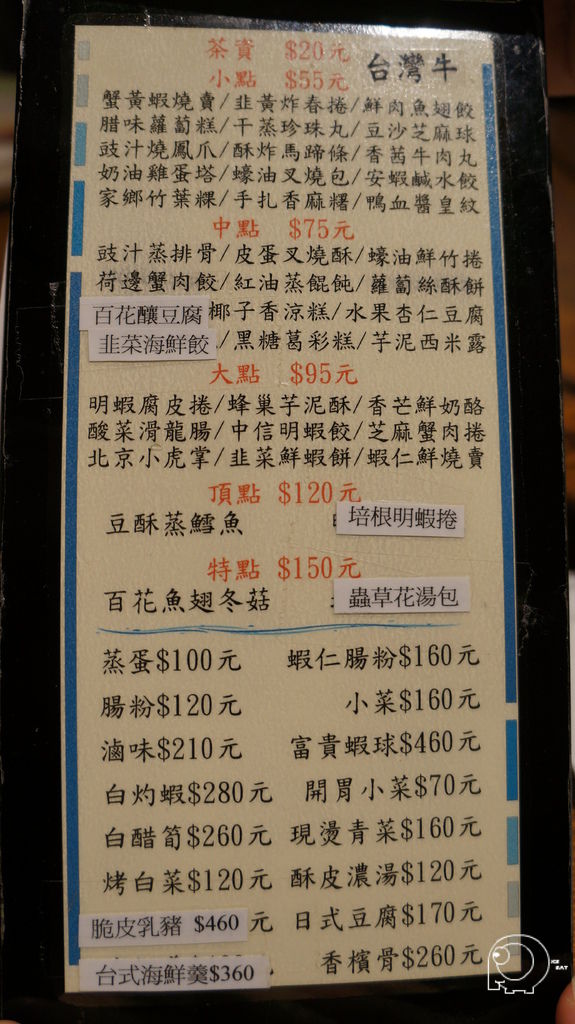 茶資 $20元
台灣牛
小點 $55元
蟹黃蝦燒賣/韭黃炸春捲/鮮肉魚翅餃
腊味蘿蔔糕/干蒸珍珠丸/豆沙芝麻球
豉汁燒鳳爪/酥炸馬蹄條/香茜牛肉丸
奶油雞蛋塔/蠔油叉燒包/安蝦鹹水餃
家鄉竹葉粿/手扎香麻糬/鴨血醬皇紋
中點 $75元
豉汁蒸排骨/皮蛋叉燒酥/蠔油鮮竹捲
荷邊蟹肉餃/紅油蒸餛飩/蘿蔔絲酥餅
百花釀豆腐 椰子香涼糕/水果杏仁豆腐
韭菜海鮮餃/黑糖葛彩糕/芋泥西米露
大點 $95元
明蝦腐皮捲/蜂巢芋泥酥/香芒鮮奶酪
酸菜滑龍腸/中信明蝦餃/芝麻蟹肉捲
北京小虎掌/韭菜鮮蝦餅/蝦仁鮮燒賣
頂點 $120元
豆酥蒸鱈魚 培根明蝦捲
特點 $150元
百花魚翅冬菇 蟲草花湯包
蒸蛋$100元 蝦仁腸粉$160元
腸粉$120元 小菜$160元
滷味$210元 富貴蝦球$460元
白灼蝦$280元 開胃小菜$70元
白醋筍$260元 現燙青菜$160元
烤白菜$120元 酥皮濃湯$120元
脆皮乳豬 $460 元 日式豆腐$170元
台式海鮮羹$360 香檳骨$260元
ICE
EAT